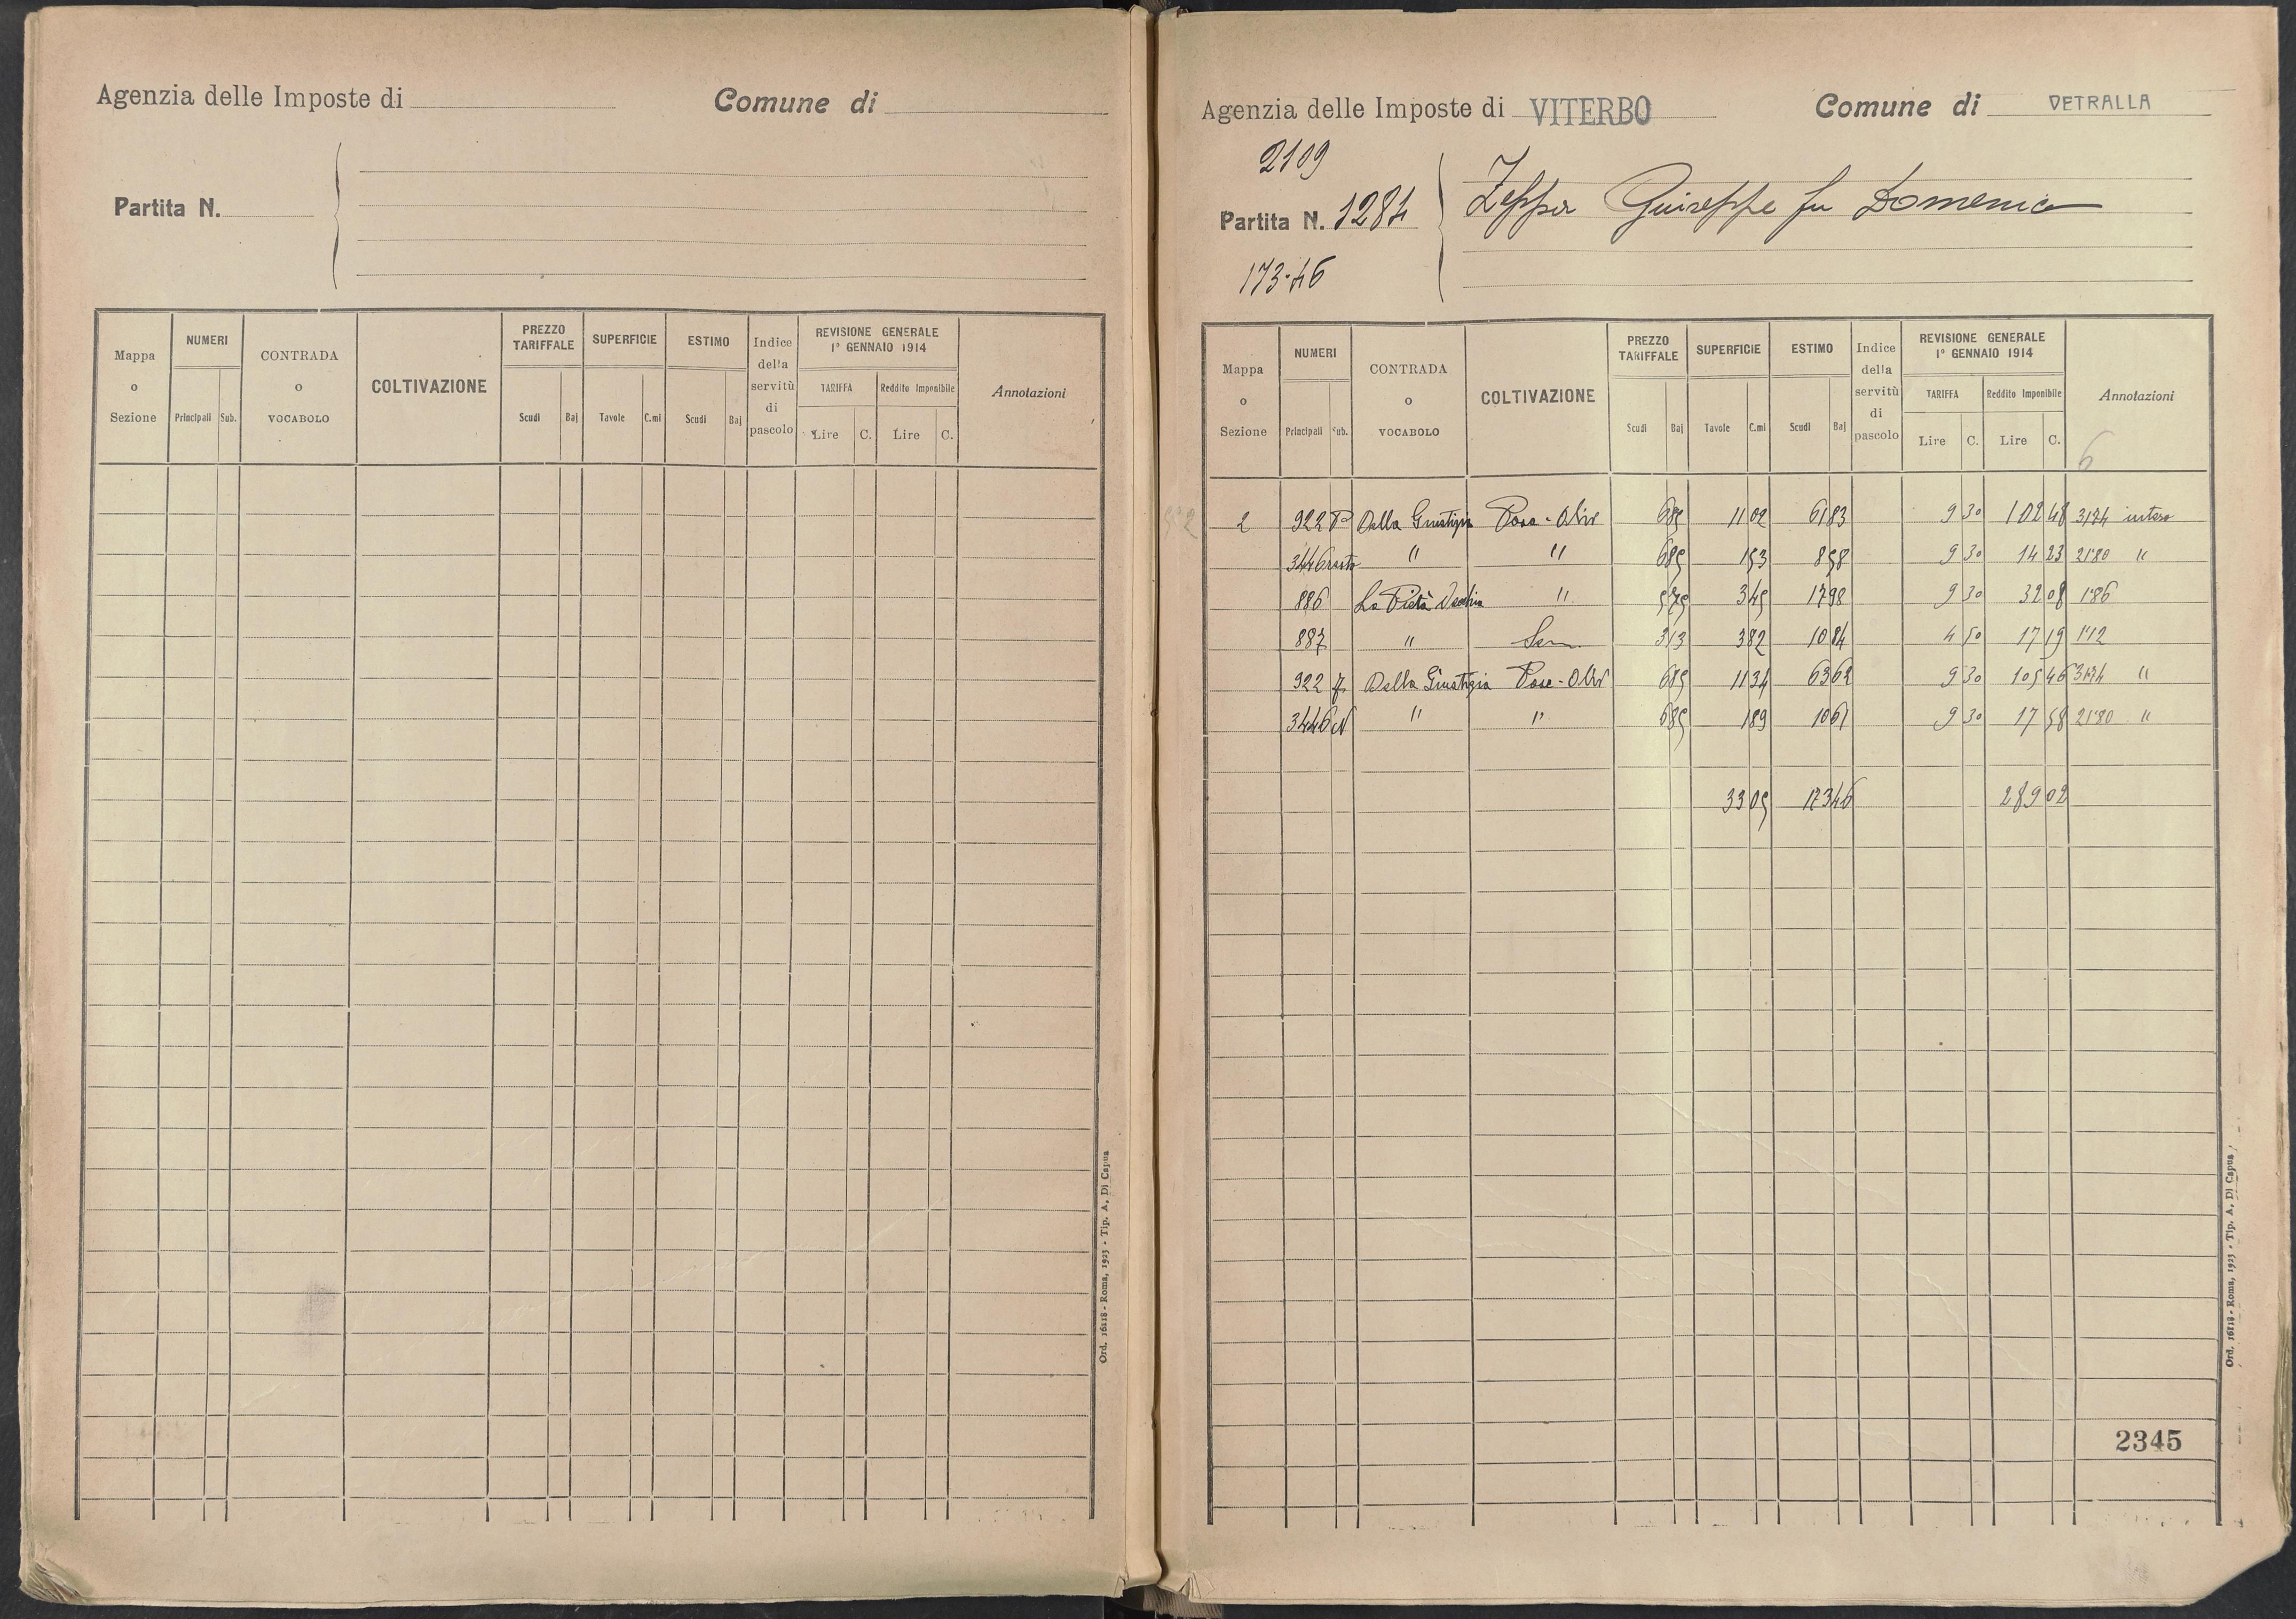 Agenzia delle Imposte di
Comune di
Partita N.
Mappa o Sezione
NUMERI
Principali Sub.
CONTRADA o VOCABOLO
COLTIVAZIONE
PREZZO TARIFFALE
Scudi Baj
SUPERFICIE
Tavole C.mi
ESTIMO
Scudi Baj
Indice della servitù di pascolo
REVISIONE GENERALE
1° GENNAIO 1914
TARIFFA Reddito Imponibile
Lire C. Lire C.
Annotazioni
Ord. 16118 - Roma, 1923 - Tip. A. Di Capua
Agenzia delle Imposte di VITERBO
Comune di VETRALLA
2109
Partita N. 1284
Zeppa Giuseppe fu Domenico
173.46
Mappa o Sezione
NUMERI
Principali Sub.
CONTRADA o VOCABOLO
COLTIVAZIONE
PREZZO TARIFFALE
Scudi Baj
SUPERFICIE
Tavole C.mi
ESTIMO
Scudi Baj
Indice della servitù di pascolo
REVISIONE GENERALE
1° GENNAIO 1914
TARIFFA Reddito Imponibile
Lire C. Lire C.
Annotazioni
6
2 922 P Della Giustizia Pasc - Oliv 685 11 02 61 83 9 30 102 48 3174 intero
3446 resto " " 685 1 53 8 58 9 30 14 23 2180 "
886 La Pietà Vecchia " 575 3 45 17 98 9 30 32 08 186
887 " Sem. 313 3 82 10 84 4 50 17 19 112
922 Della Giustizia Pasc - Oliv 685 11 34 63 62 9 30 105 46 3174 "
3446 N " " 685 1 89 10 61 9 30 17 58 2180 "
33 05 173 46 289 02
2345
Ord. 16118 - Roma, 1923 - Tip. A. Di Capua